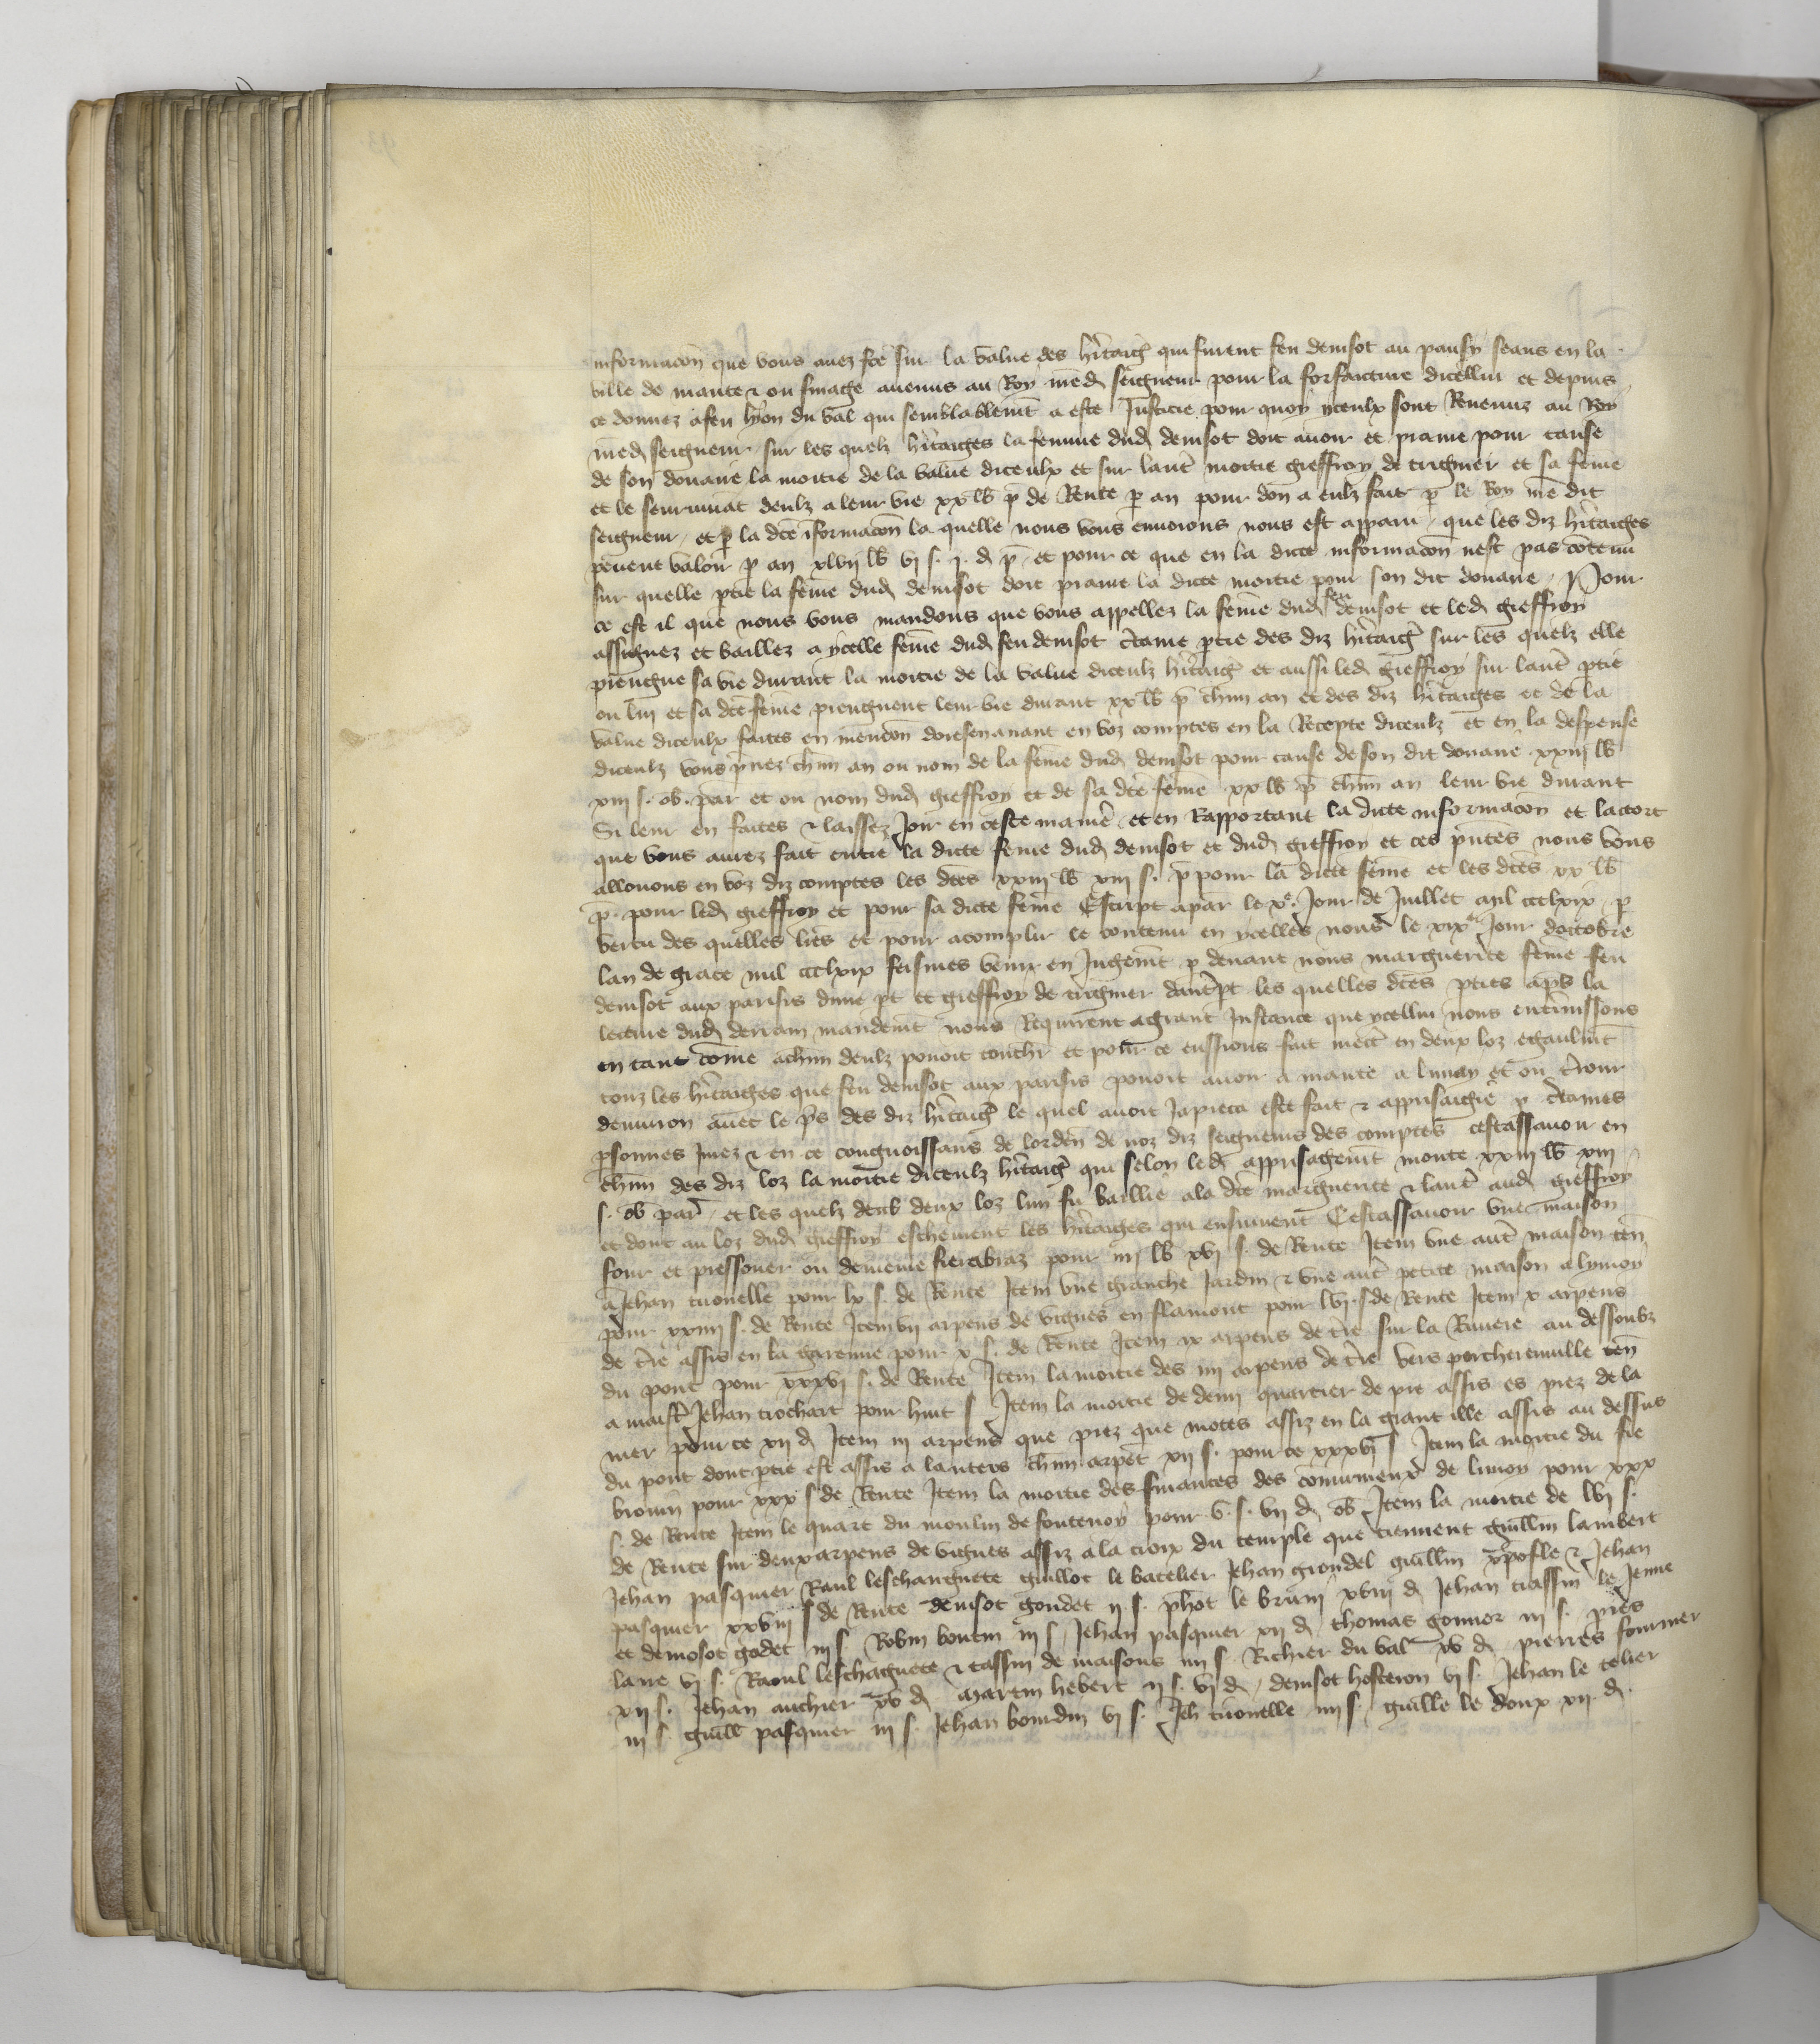 informacon que vous avez fce sur la value des heritaig qui furent feu denisot au parisy seans en la
ville de mante et ou finage avenus au Roy med seigneur pour la forfaicture dicellui et depuis
ce donnez a feu du val qui semblablemt a este Justicie pour quoy yceulx sont Revenuz au Roy
med seigneur sur les quelz heritaiges la femme dud denisot doit avoir et pranre pour cause
de son douaire la moitie de la value diceulx et sur lautre moitie gieffroy de trigmer et sa feme
et le seurvivat deulz a leur vie xx lb p de Rente p an pour don a eulz fait p le Roy me dit
seigneur et p la dce iformacon la quelle nous vous envoions nous est apparu que les diz heritaiges
pevent valoir p an xlvii lb vi s. i. d p et pour ce que en la dicte informacon nest pas cotenu
sur quelle ptie la feme dud denisot doit pranre la dicte moitie pour son dit douaire Pour
ce est il que nous vous mandons que vous appellez la feme dud feu denisot et led gieffroy
assignez et bailliez a ycelle feme dud feu denisot ctaine ptie des diz heritaig sur les quelz elle
prengne sa vie durant la moitie de la value diceulz heritaig et aussi led gieffroy sur lautre ptie
ou lui et sa dce feme prengnent leur vie durant xx lb p chun an et des diz heritaiges et de la
value diceulx faites en mencon doresenavant en voz comptes en la Recepte diceulz et en la despense
diceulz vous prnez chun an ou nom de la feme dud denisot pour cause de son dit douaire xxiii lb
xiii s. ob. par et ou nom dud gieffroy et de sa dce feme xx lb p chun an leur vie durant
Si leur en faites et laissez Joir en ceste maniere et en Rapportant la dicte informacon et lactort
que vous aurez fait entre la dicte feme dud denisot et dud gieffroy et ces pntes nous vous
allouons en voz diz comptes les dces xxiii lb xiii s. p pour la dicte feme et les dces xx lb
p. pour led gieffroy et pour sa dicte feme Escript a par le xe. Jour de Juillet mil ccclxix p
vertu des quelles lres et pour acomplir le contenu en ycelles nous le xixe Jour doctobre
lan de grace mil ccclxix feismes venir en Jugemt p devant nous marguerite feme feu
denisot aux parisis dune pt et gieffroy de trigmer dautrept les quelles dces pties aps la
lecture dud derrain mandemt nous Requirent a grant Instance que ycellui nous enterinissons
en tant come achun deulz povoit touchr et pour ce eussions fait mect en deux loz egaulmt
touz les heritaiges que feu denisot aux parisis povoit avoir a mante a limay et ou tirouer
denviron avec le ps des diz heritaig le quel avoit Japieca este fait et apprisaigie p ctaines
psonnes Jurez et en ce congnoissans de lorden de noz diz seigneurs des comptes cestassavoir en
chun des diz loz la moitie diceulz heritaig qui selon led apprisagemt monte xxiii lb xiii
s. ob par. et les quelz deux loz lun fu baillie a la dce marguerite et lautre aud gieffroy
et dont au loz dud gieffroy eschevient les heritaiges qui ensuivent Cestassavoir une maison
four et pressouer ou demeure fierabraz pour iiii lb xvi s. de Rente Item une autre maison ten
a Jehan tuonelle pour lx s. de Rente Item une granche Jardin et une autre petite maison a lymoy
pour xxiiii s. de Rente Item vii arpens de vignes en flamont pour lvi. s de Rente Item x arpens
de tre assis en la garenne pour x s. de Rente Item ix arpens de tre sur la Riviere au dessoubz
du pont pour xxxvi s. de Rente Item la moitie des iiii arpens de tre vers porcheienville ten
a maist Jehan trochart pour huit s Item la moitie de demi quartier de pre assis es prez de la
mer pour ce xii d Item iii arpens que prez que motes assiz en la grant ille assis au dessus
du pont dont ptie est assis a lauters chun arpet xii s. pour ce xxxvi s Item la moitie du fie
broun pour xxx s de Rente Item la moitie des finances des comuneux de limoy pour xxx
s. de Rente Item le quart du moulin de fontenoy pour v. s. vii d ob Item la moitie de lvi s.
de Rente sur deux arpens de vignes assiz a la croix du temple que tiennent guillm lambert
Jehan pasquier Raul leschauguete guillot le batelier Jehan grondel guillm xpofle et Jehan
pasquier xxviii s de Rente denisot goudet ii s. phot le brun xviii d Jehan trassin le Jeune
et demosot godet iii s Robin boutin iii s Jehan pasquier xii d thomas gonnor iii s. pres
lane vi s. Raoul leschaguete et tassin de maisons iiii s Richier du val xv d pierres fournier
xii s. Jehan auchier xv d martin hebert ii s. vi d denisot hosteron vi s. Jehan le telier
iii s. guill pasquier iii s. Jehan bourdin vi s. Jeh tuonelle iiii s. guille le doux xii d.